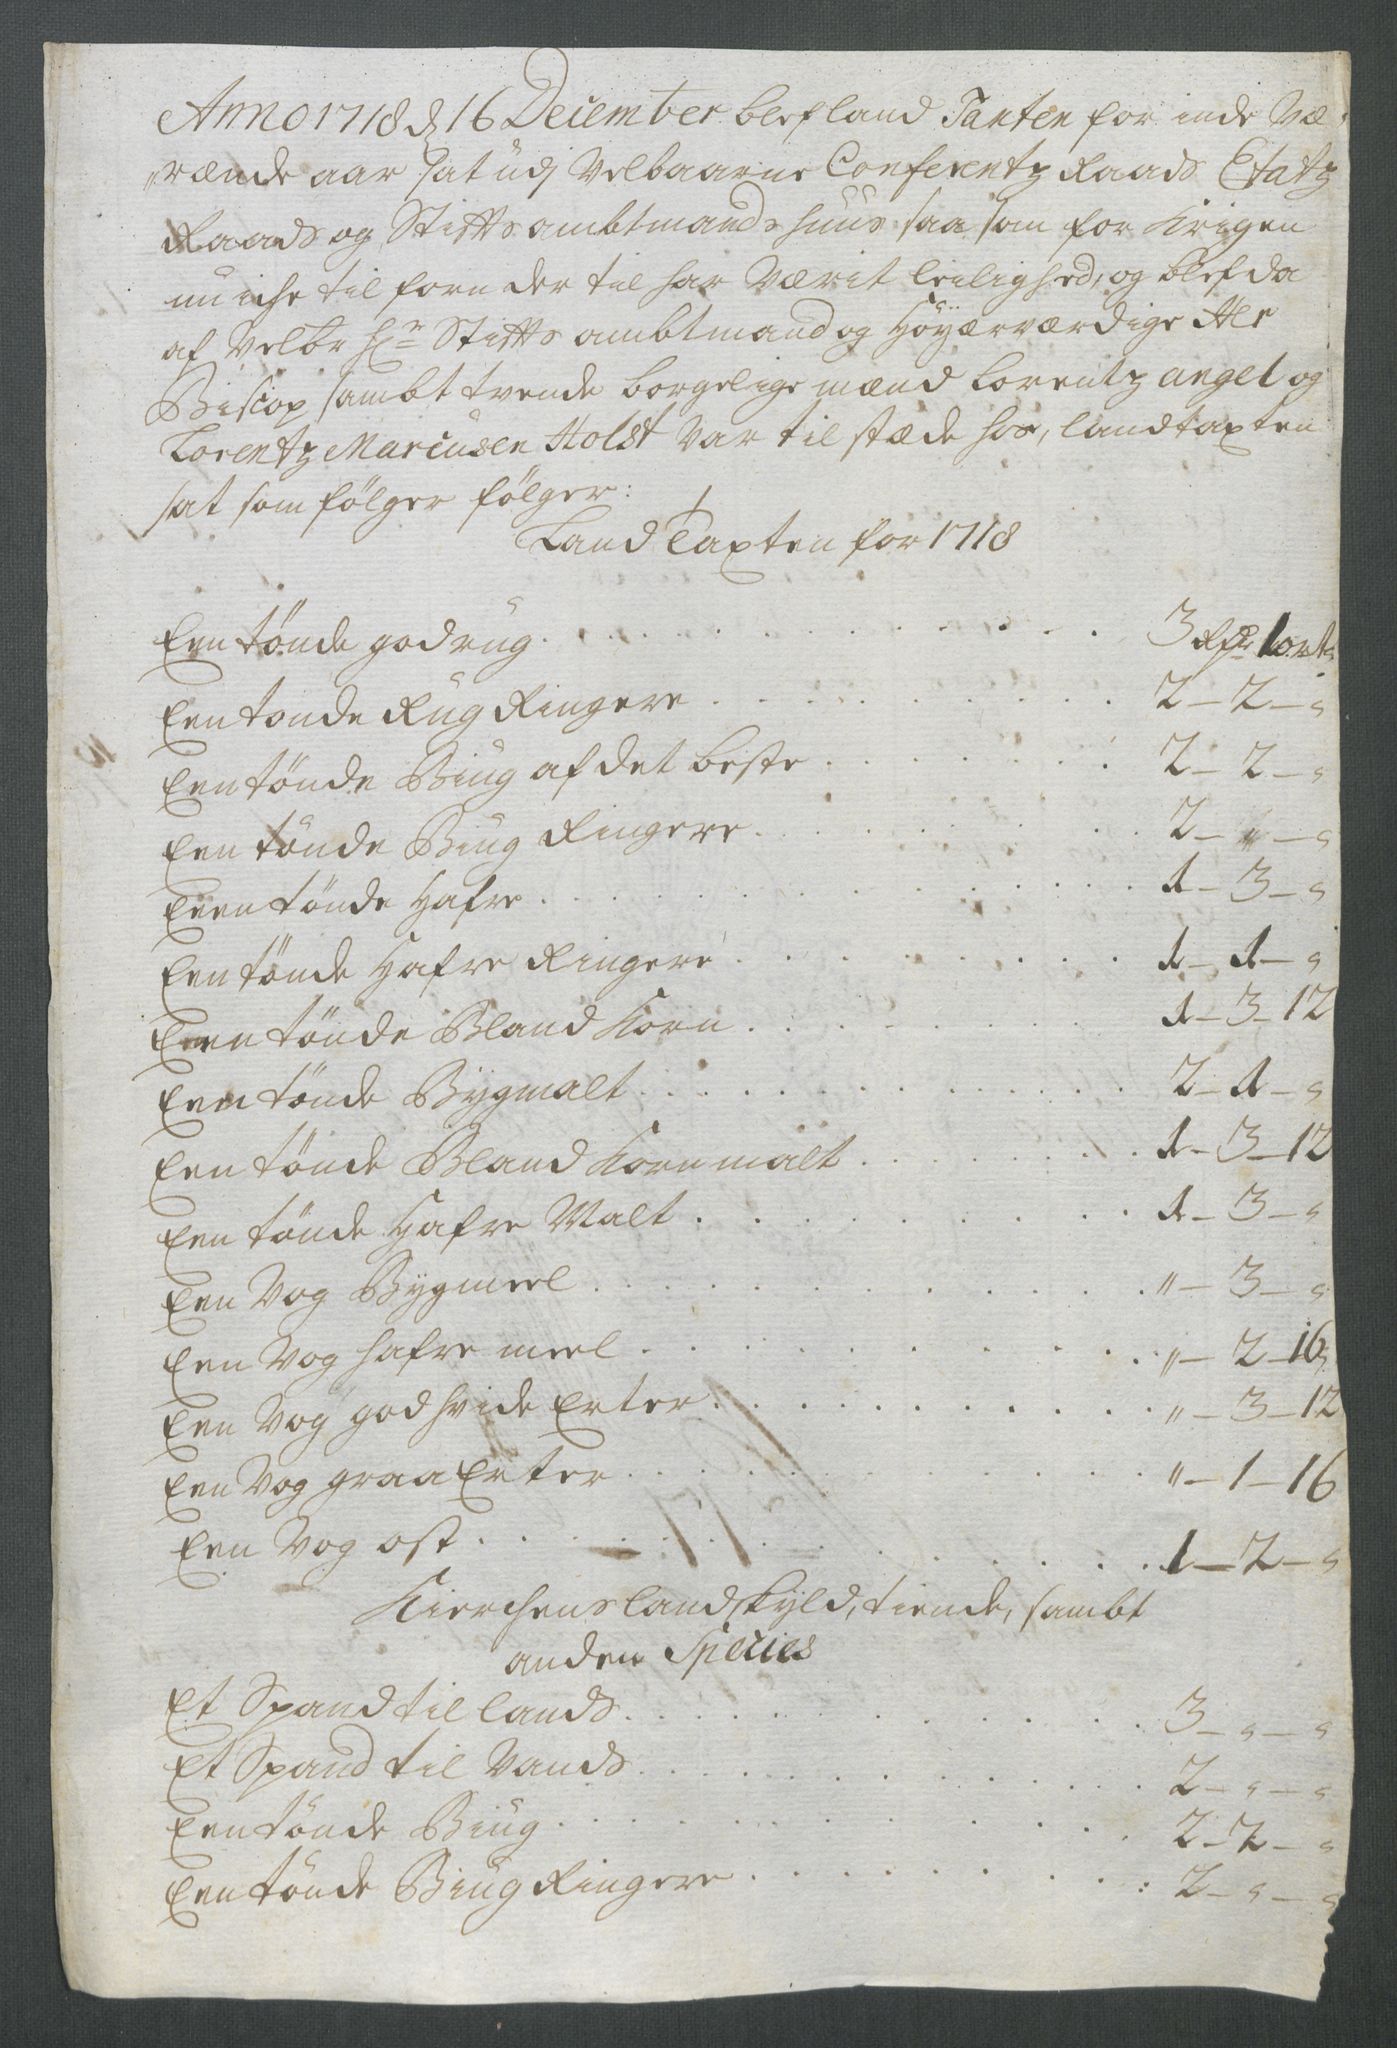 Anno 1718 d 16 December blef land Taxten for inde Væ-
rænde aar sat udj Velbaarne Conferentz Raads Etatz
Raads og Stiftsambtmands huus saa som for Krigen
nu iche til forn der til har Værit leilighed, og blef da
af Velbr Hr Stiftsambtmand og Höÿærværdige Hr
Biscop sambt tvende borgelige mænd Lorentz angel og
Lorentz Marcusen Holst var til stæde hos, landtaxten
sat som fölger fölger:
Land Taxten for 1718
Een tönde god rug . . . 3 Rdr 1 ort s
Een tonde Rug Ringere . . . 2 – 2 – s
Een tönde Biug af det beste . . . 2 – 2 – s
Een tönde Biug Ringere . . . 2 – " – s
Een tönde Hafre . . . 1 – 3 – s
Een tönde Hafre Ringere . . . 1 – 1 – s
Een tönde Bland Korn . . . 1 – 3 – 12
Een tönde Bÿgmalt . . . 2 – 1 – s
Een tönde Bland Korn malt . . . 1 – 3 – 12
Een tönde Hafre Malt . . . 1 – 3 – s
Een Vog Bÿgmeel . . . " – 3 – s
Een Vog hafre meel . . . " – 2 – 16 s
Een Vog god hvide Erter . . . " – 3 – 12
Een Vog graa Erter . . . " – 1 – 16
Een Vog ost . . . 1 – 2 – s
Kierchens landskÿld, tiende, sambt
anden Species
Et Spand til lands . . . 3 – s – s
Et Spand til Vands . . . 2 – s – s
Een tönde Biug . . . 2 – 2 – s
Een tönde Biug Ringere . . . 2 – s – s